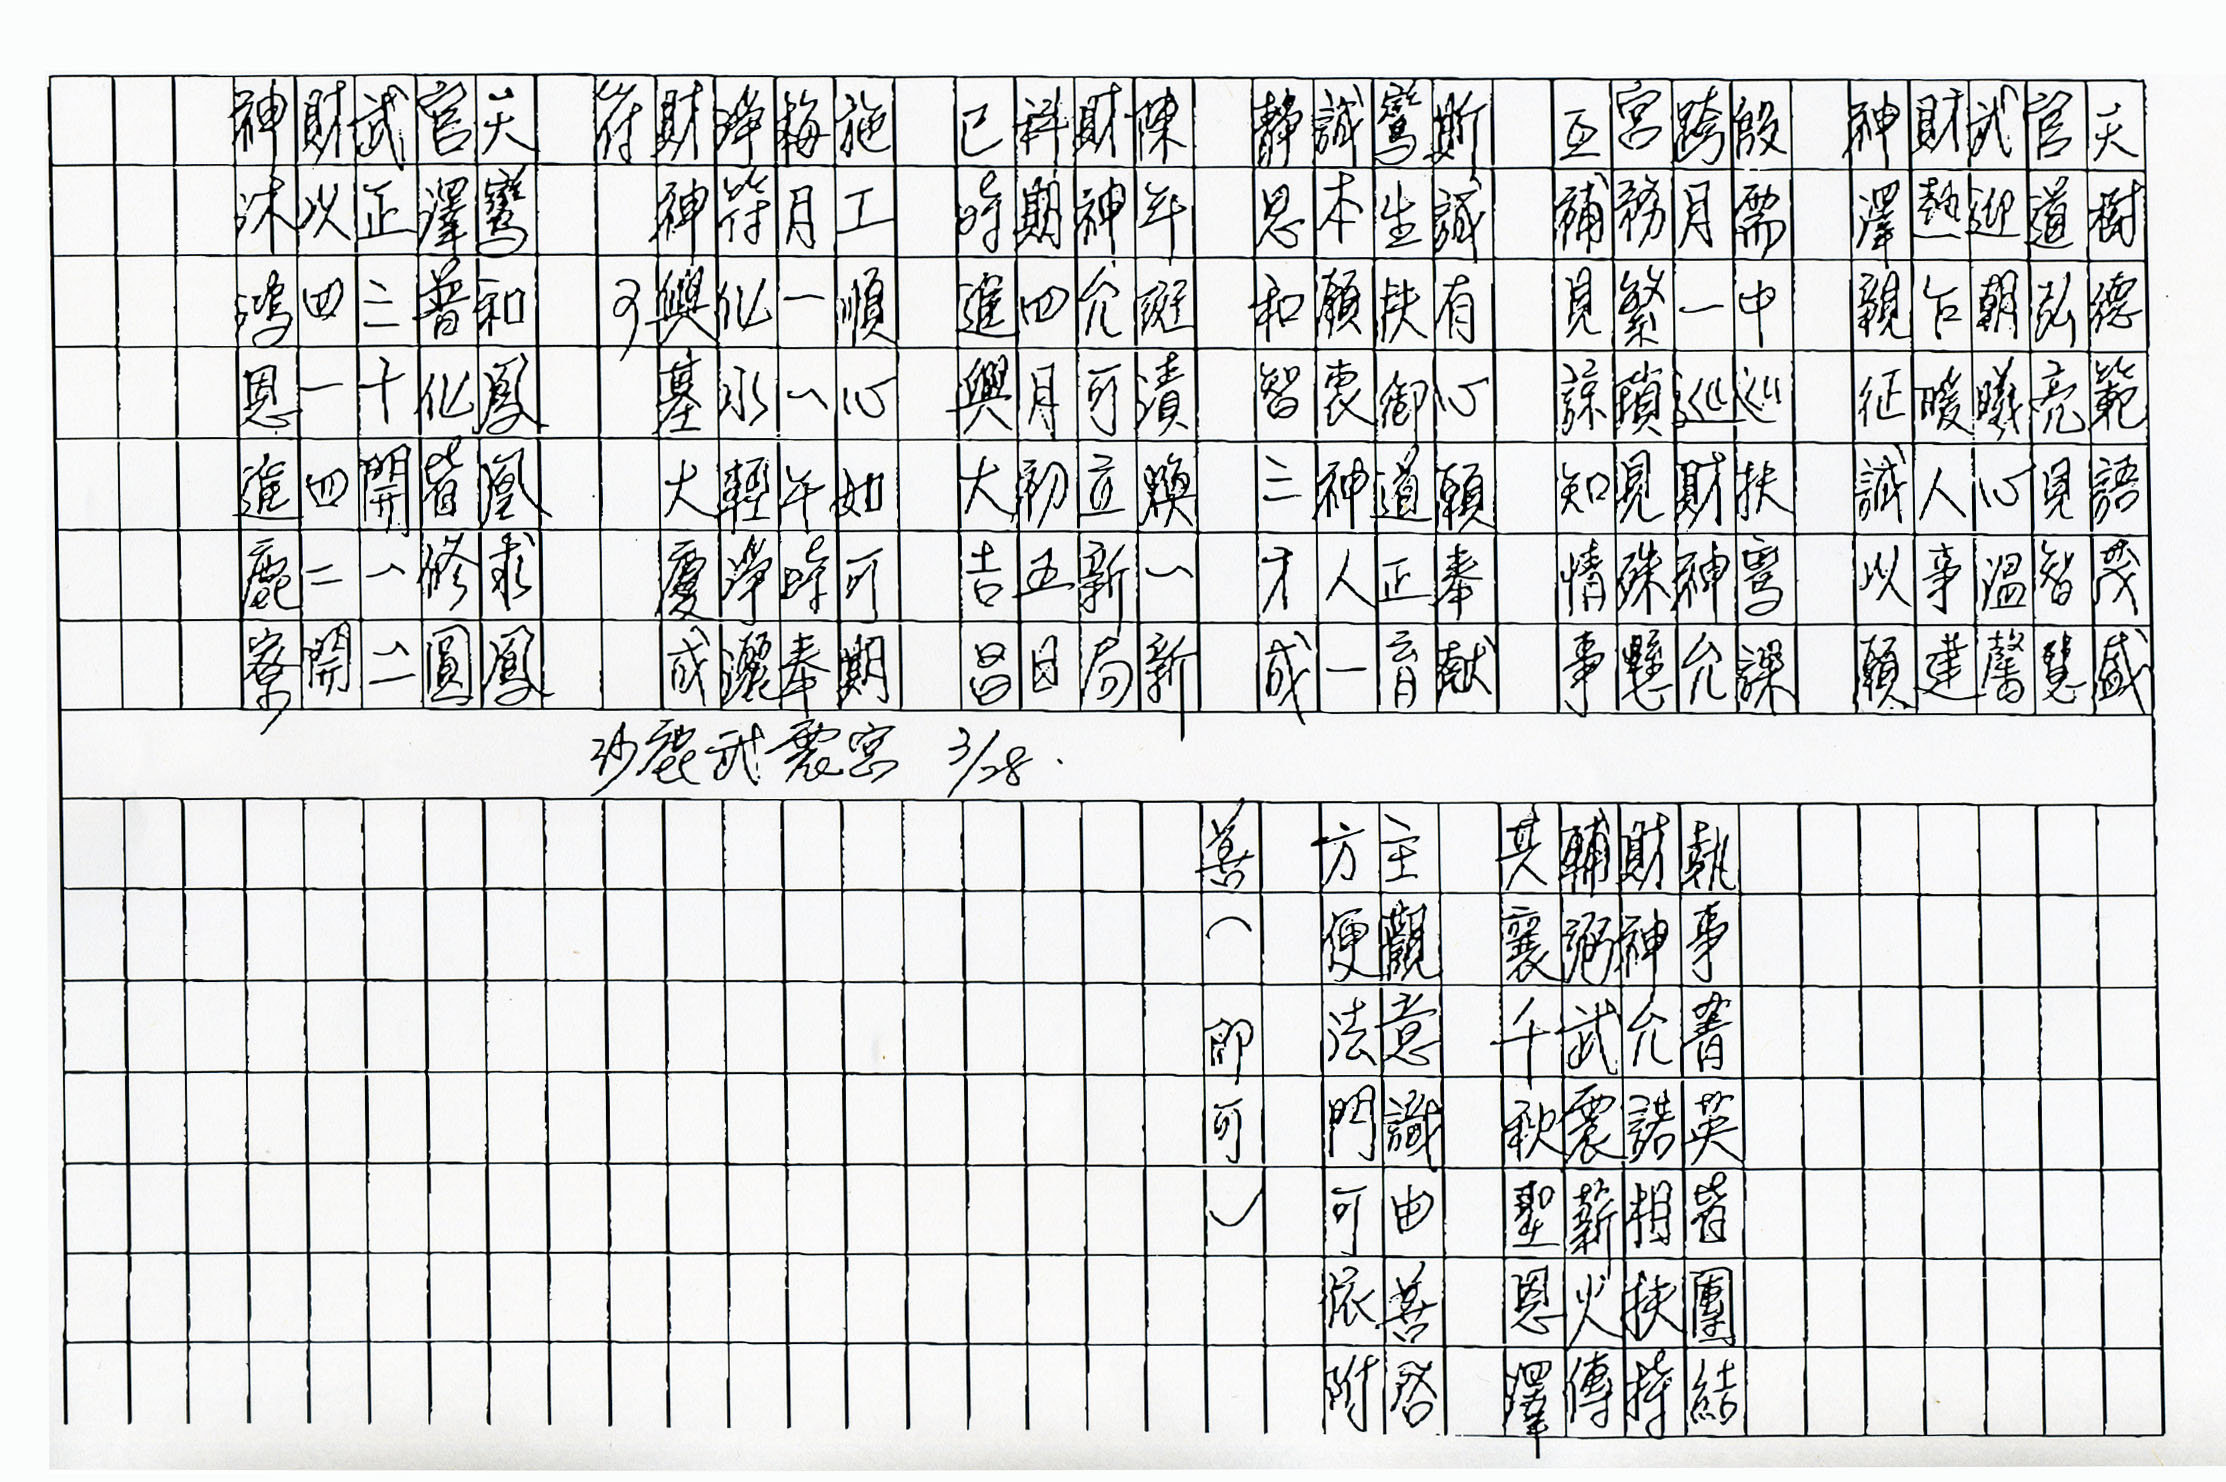 天樹德範語茂盛
官道弘亮見智慧
武迎朝曦心溫馨
財熱乍暖人事建
神澤親征誠以願
殷需中巡扶鸞課
跨月一巡財神允
宮務繁瑣見殊懸
亟補見諒知情事
斯誠有心願奉獻
鸞生扶御道正育
誠本願衷神人一
靜思和智三才成
陳年斑漬煥一新
財神允可立新局
科期四月初五日
已時進興大吉昌
施工順心如可期
每月一八午時奉
淨符化水輕淨灑
財神興基大慶成
符可
天鸞和鳳凰求鳳
官澤普化皆修圓
武正三十開一二
財以四一四二開
神沐鴻恩進鹿寮
沙鹿武震宮 3/28.
執事菁英皆團結
財神允諾相扶持
輔弼武震薪火傳
共襄千秋聖恩澤
主觀意識由善啓
方便法門可依附
善（ 即可）